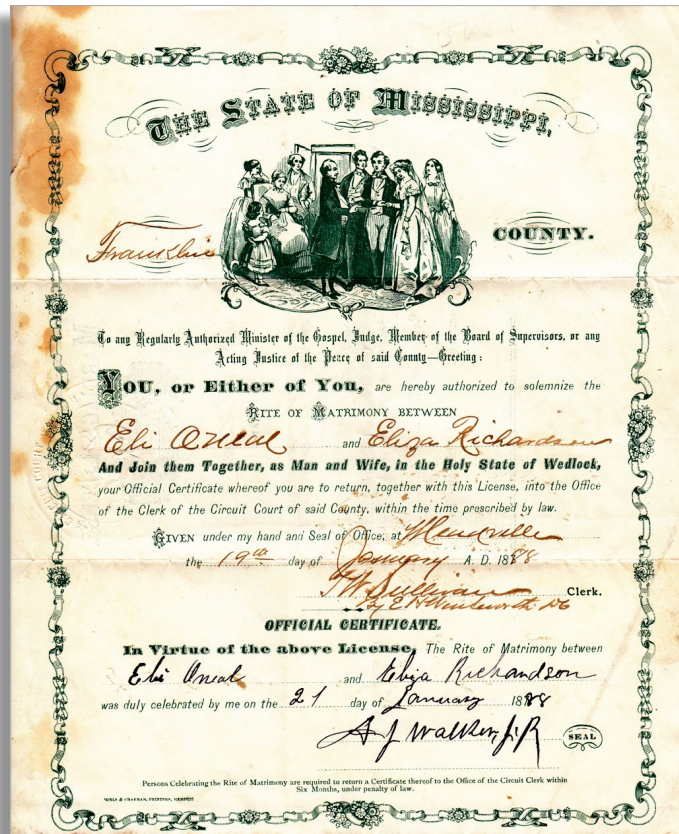 THE STATE OF MISSISSIPPI,
Franklin COUNTY.
To any Regularly Authorized Minister of the Gospel, Judge, Member of the Board of Supervisors, or any
Acting Justice of the Peace of said County—Greeting:
YOU, or Either of You, are hereby authorized to solemnize the
RITE OF MATRIMONY BETWEEN
Eli Oneal and Eliza Richardson
And Join them Together, as Man and Wife, in the Holy State of Wedlock,
your Official Certificate whereof you are to return, together with this License, into the Office
of the Clerk of the Circuit Court of said County, within the time prescribed by law.
GIVEN under my hand and Seal of Office, at Meadville
the 19th day of January A. D. 1888
Sullivan Clerk.
by E H Wentworth DC
OFFICIAL CERTIFICATE.
In Virtue of the above License, The Rite of Matrimony between
Eli Oneal and Eliza Richardson
was duly celebrated by me on the 21 day of January 1888
A J Walker, J.P. SEAL
Persons Celebrating the Rite of Matrimony are required to return a Certificate thereof to the Office of the Circuit Clerk within
Six Months, under penalty of law.
& CHAPMAN, PRINTERS, MEMPHIS